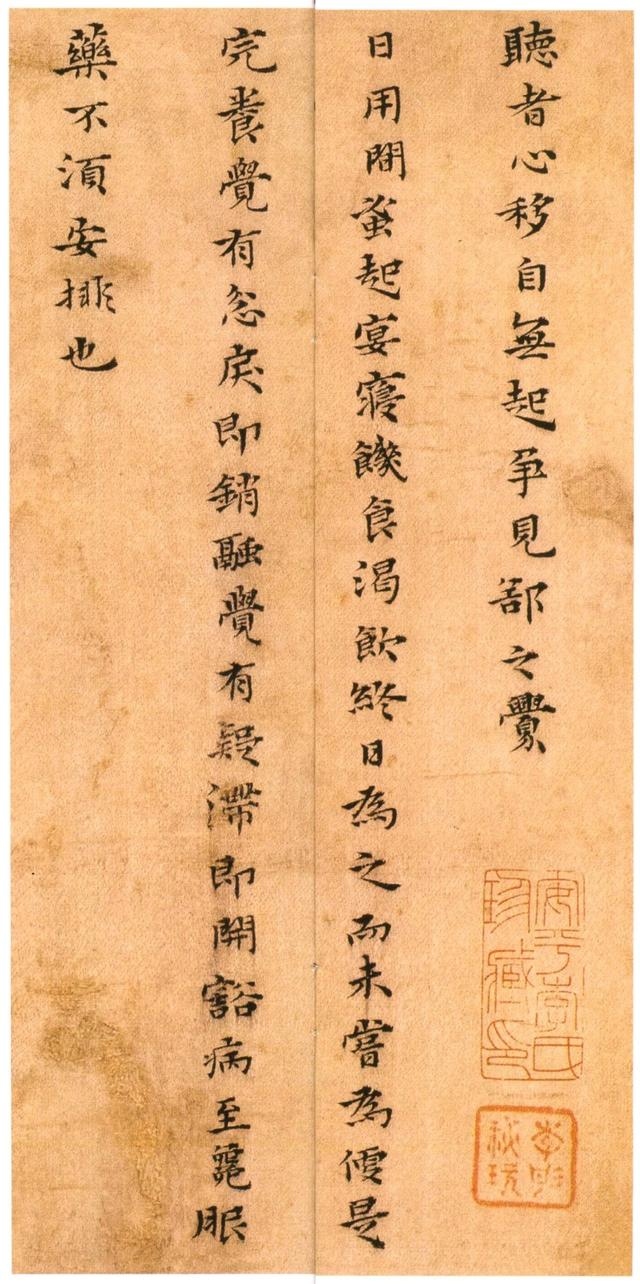 聽者心移自無起爭見郤之釁
日用間蚤起宴寢饑食渴飲終日為之而未嘗為便是
完養覺有忿戾即銷融覺有疑滯即開豁病至服
藥不須安排也
安平李氏珍藏印